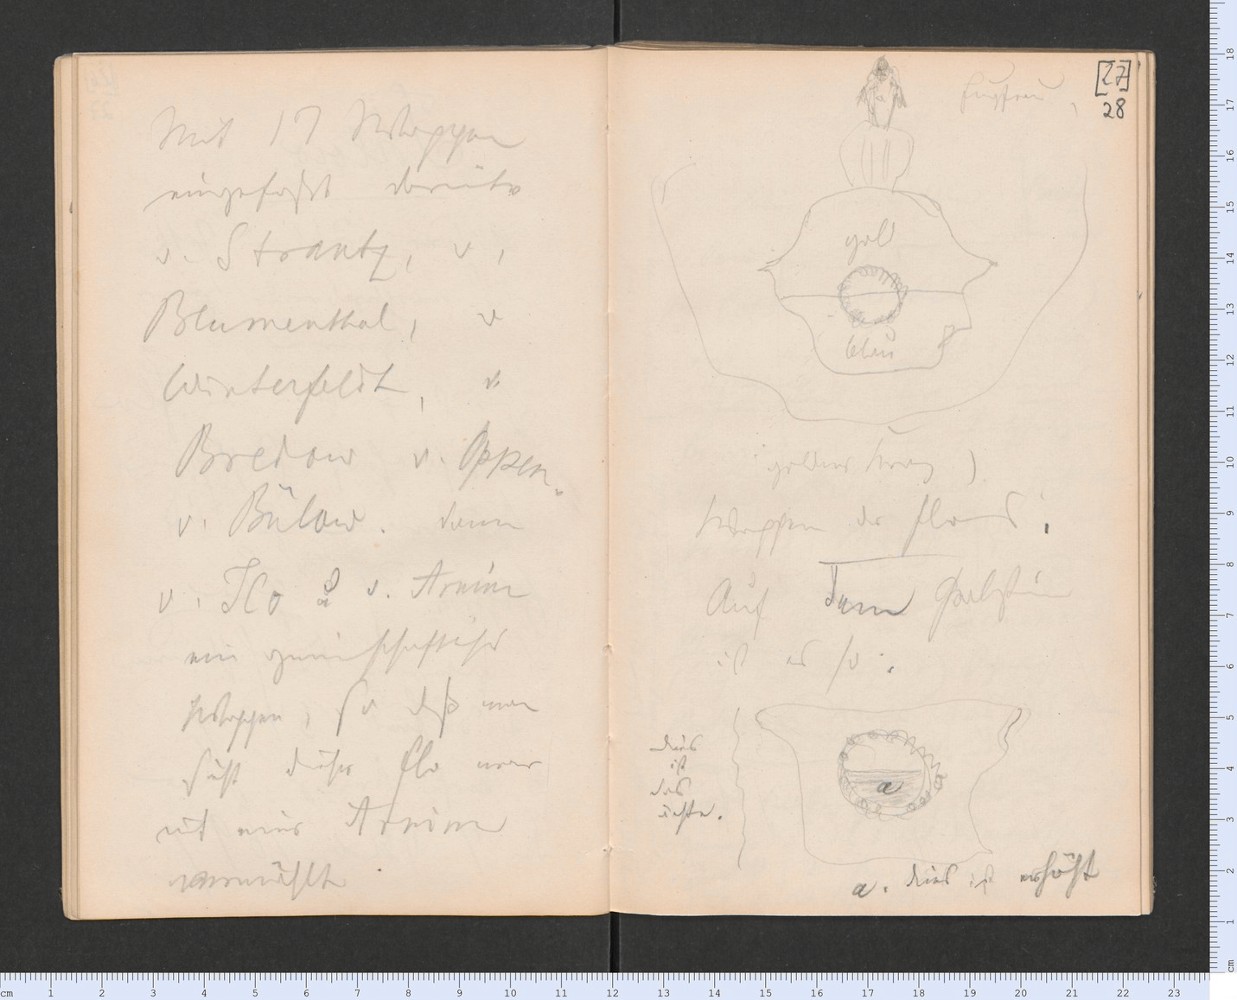 Mit 17 Wappen
eingefaßt darunter
v. Strantz, v,
Blumenthal, v
Winterfeldt, v
Bredow v. Oppen.
v. Bülow. dann
v. Ilo & v. Arnim
ein gemeinschaftliches
Wappen, so daß man
sieht dieser Flo war
mit einer Arnim
vermählt.
[27]
28
Jungfrau,
gold
blau
goldner Kranz)
Wappen der Flans:
Auf dem Grabstein
ist es so:
dies
ist
das
ächte.
a
a. dies ist erhöht